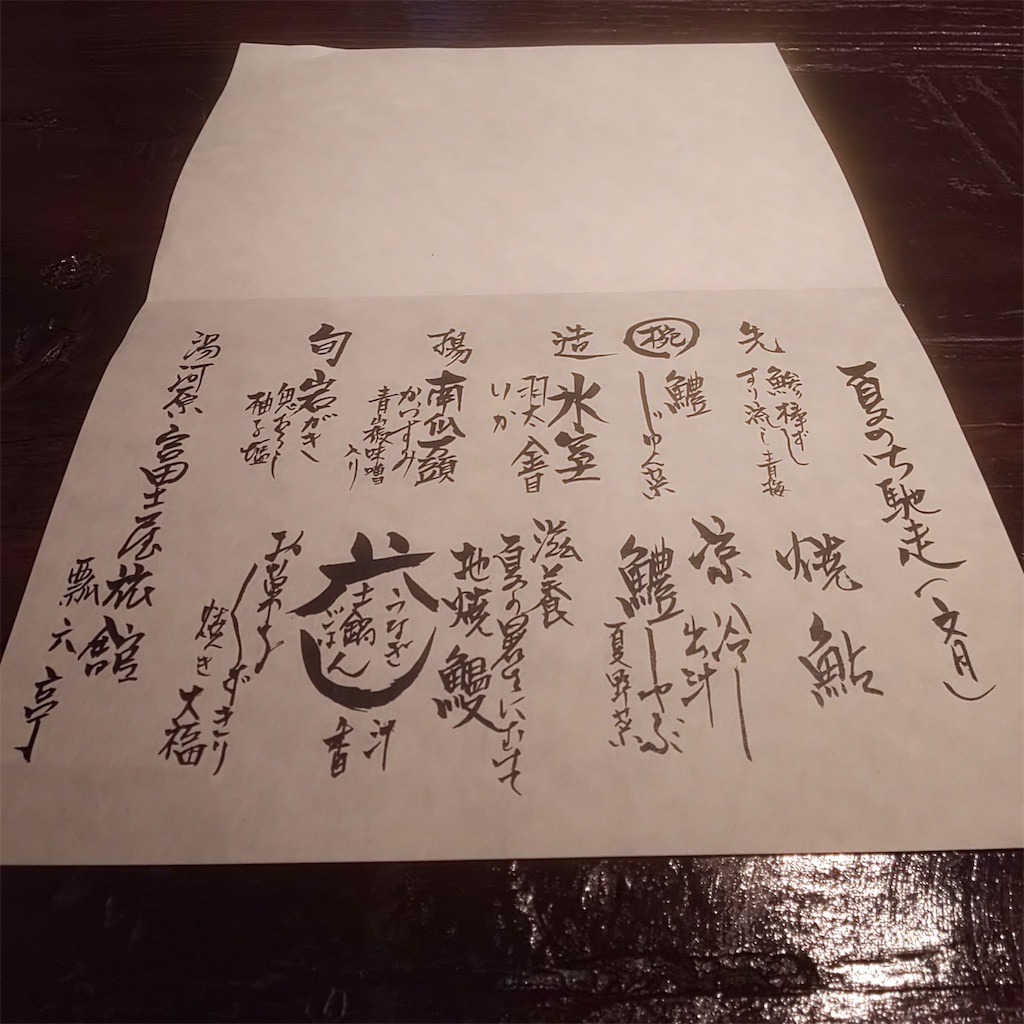 夏のご馳走(文月)
先
鯵棒ずし
すり流し青梅
椀
鱧
じゅん菜
造
氷室
羽太
いか
揚
南瓜饅頭
かつすみ
青山椒味噌入り
旬
岩がき
柚子塩
焼鮎
涼
冷し
出汁
鱧しゃぶ
夏野菜
滋養
夏の暑さにむけて
地焼鰻
うなぎ
土鍋
ごはん
汁
香
お菓子
くずきり
焼き大福
湯河原
富士屋旅館
瓢六亭